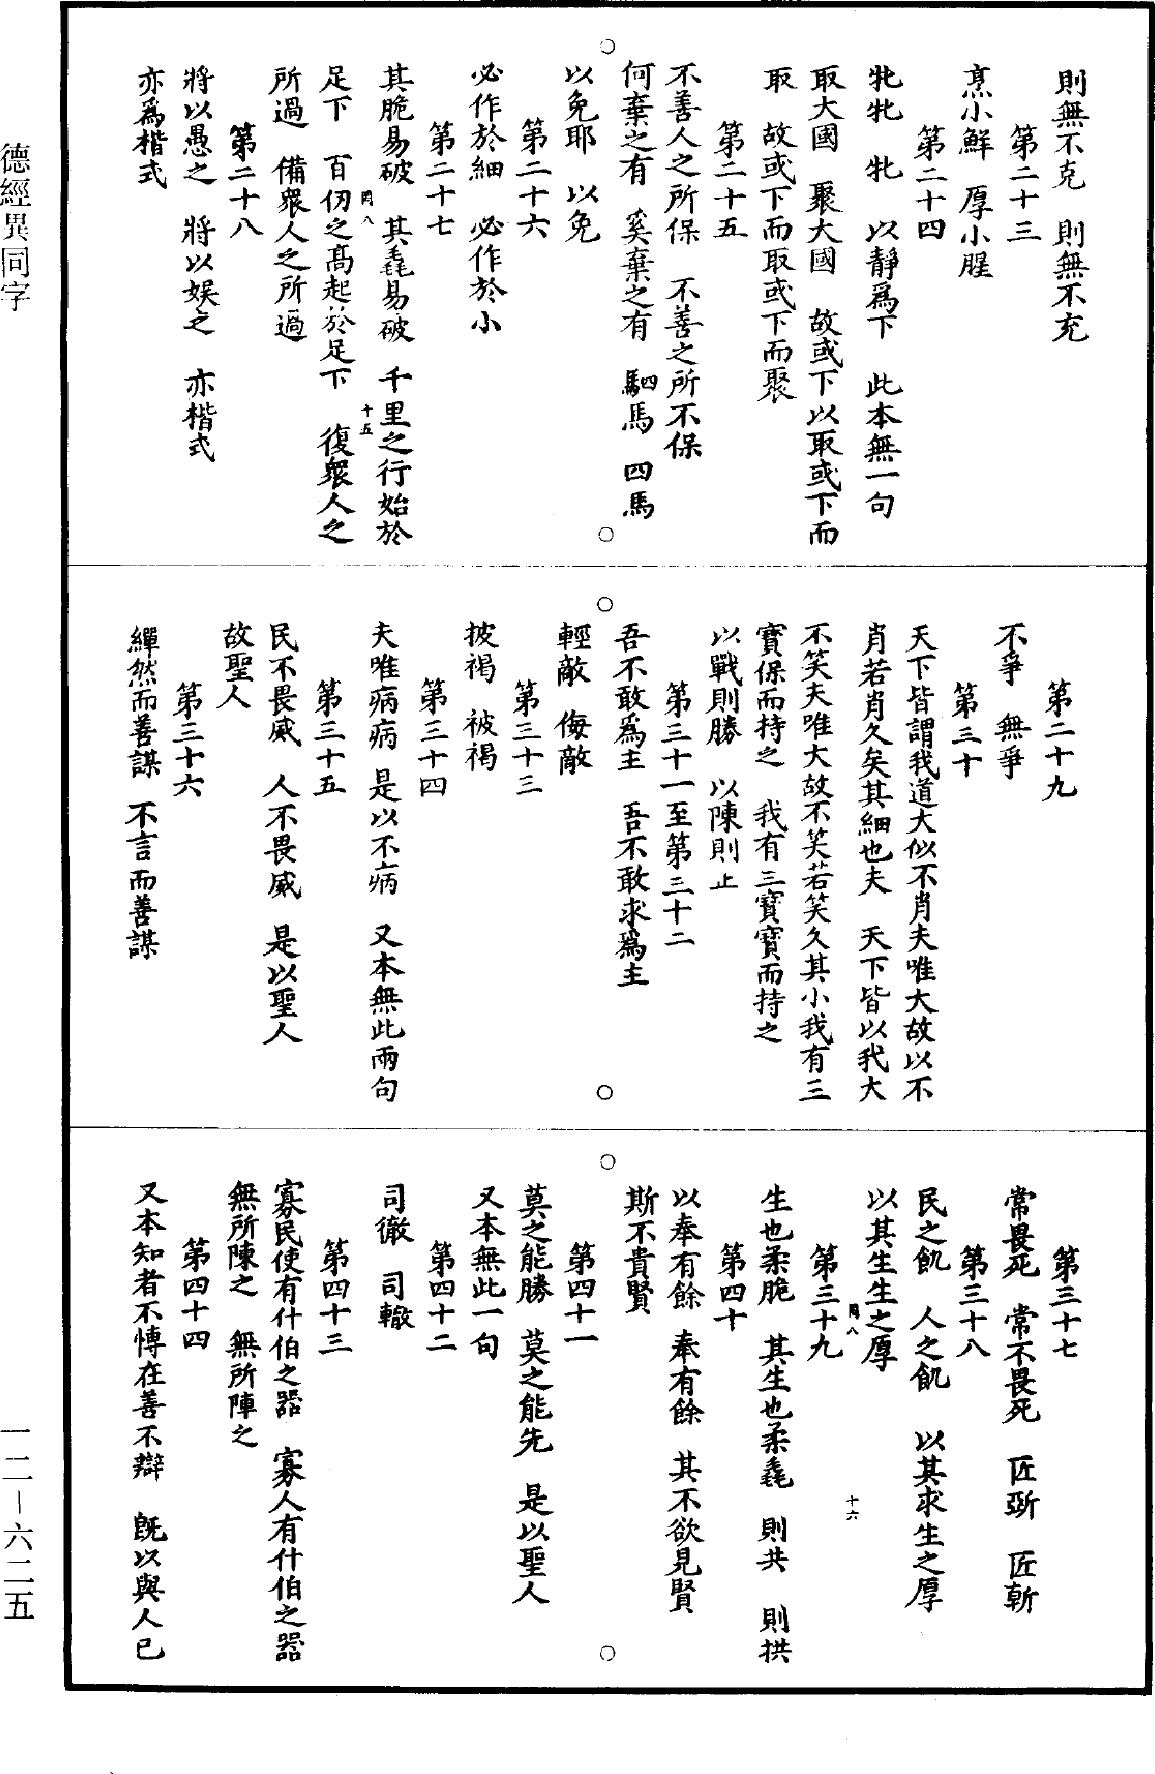 則無不克　則無不充
第二十三
烹小鮮　厚小腥
第二十四
牝牝　牝　以靜爲下　此本無一句
取大國　聚大國　故或下以取或下而
取　故或下而取或下而聚
第二十五
不善人之所保　不善之所不保
何棄之有　奚棄之有　駟馬　四馬
以免耶　以免
第二十六
必作於細　必作於小
第二十七
其脆易破　其毳易破　千里之行始於
足下　百仞之高起於足下　復衆人之
所過　備衆人之所過
第二十八
將以愚之　將以娱之　亦楷式
亦爲楷式
同八
十五
第二十九
不爭　無爭
第三十
天下皆謂我道大似不肖夫唯大故以不
肖若肖久矣其細也夫　天下皆以我大
不笑夫唯大故不笑若笑久其小我有三
寳保而持之　我有三寳寳而持之
以戰則勝　以陳則止
第三十一至第三十二
吾不敢爲主　吾不敢求爲主
輕敵　侮敵
第三十三
披褐　被褐
第三十四
夫唯病病　是以不病　又本無此兩句
第三十五
民不畏威　人不畏威　是以聖人
故聖人
第三十六
繟然而善謀　不言而善謀
第三十七
常畏死　常不畏死　匠斵　匠斬
第三十八
民之飢　人之飢　以其求生之厚
以其生生之厚
第三十九
生也柔脆　其生也柔毳　則共　則拱
第四十
以奉有餘　奉有餘　其不欲見賢
斯不貴賢
第四十一
莫之能勝　莫之能先　是以聖人
又本無此一句
第四十二
司徹　司轍
第四十三
寡民使有什伯之器　寡人有什伯之器
無所陳之　無所陣之
第四十四
又本知者不愽在善不辯　旣以與人已
同八
十六
德經異同字
一二－六二五